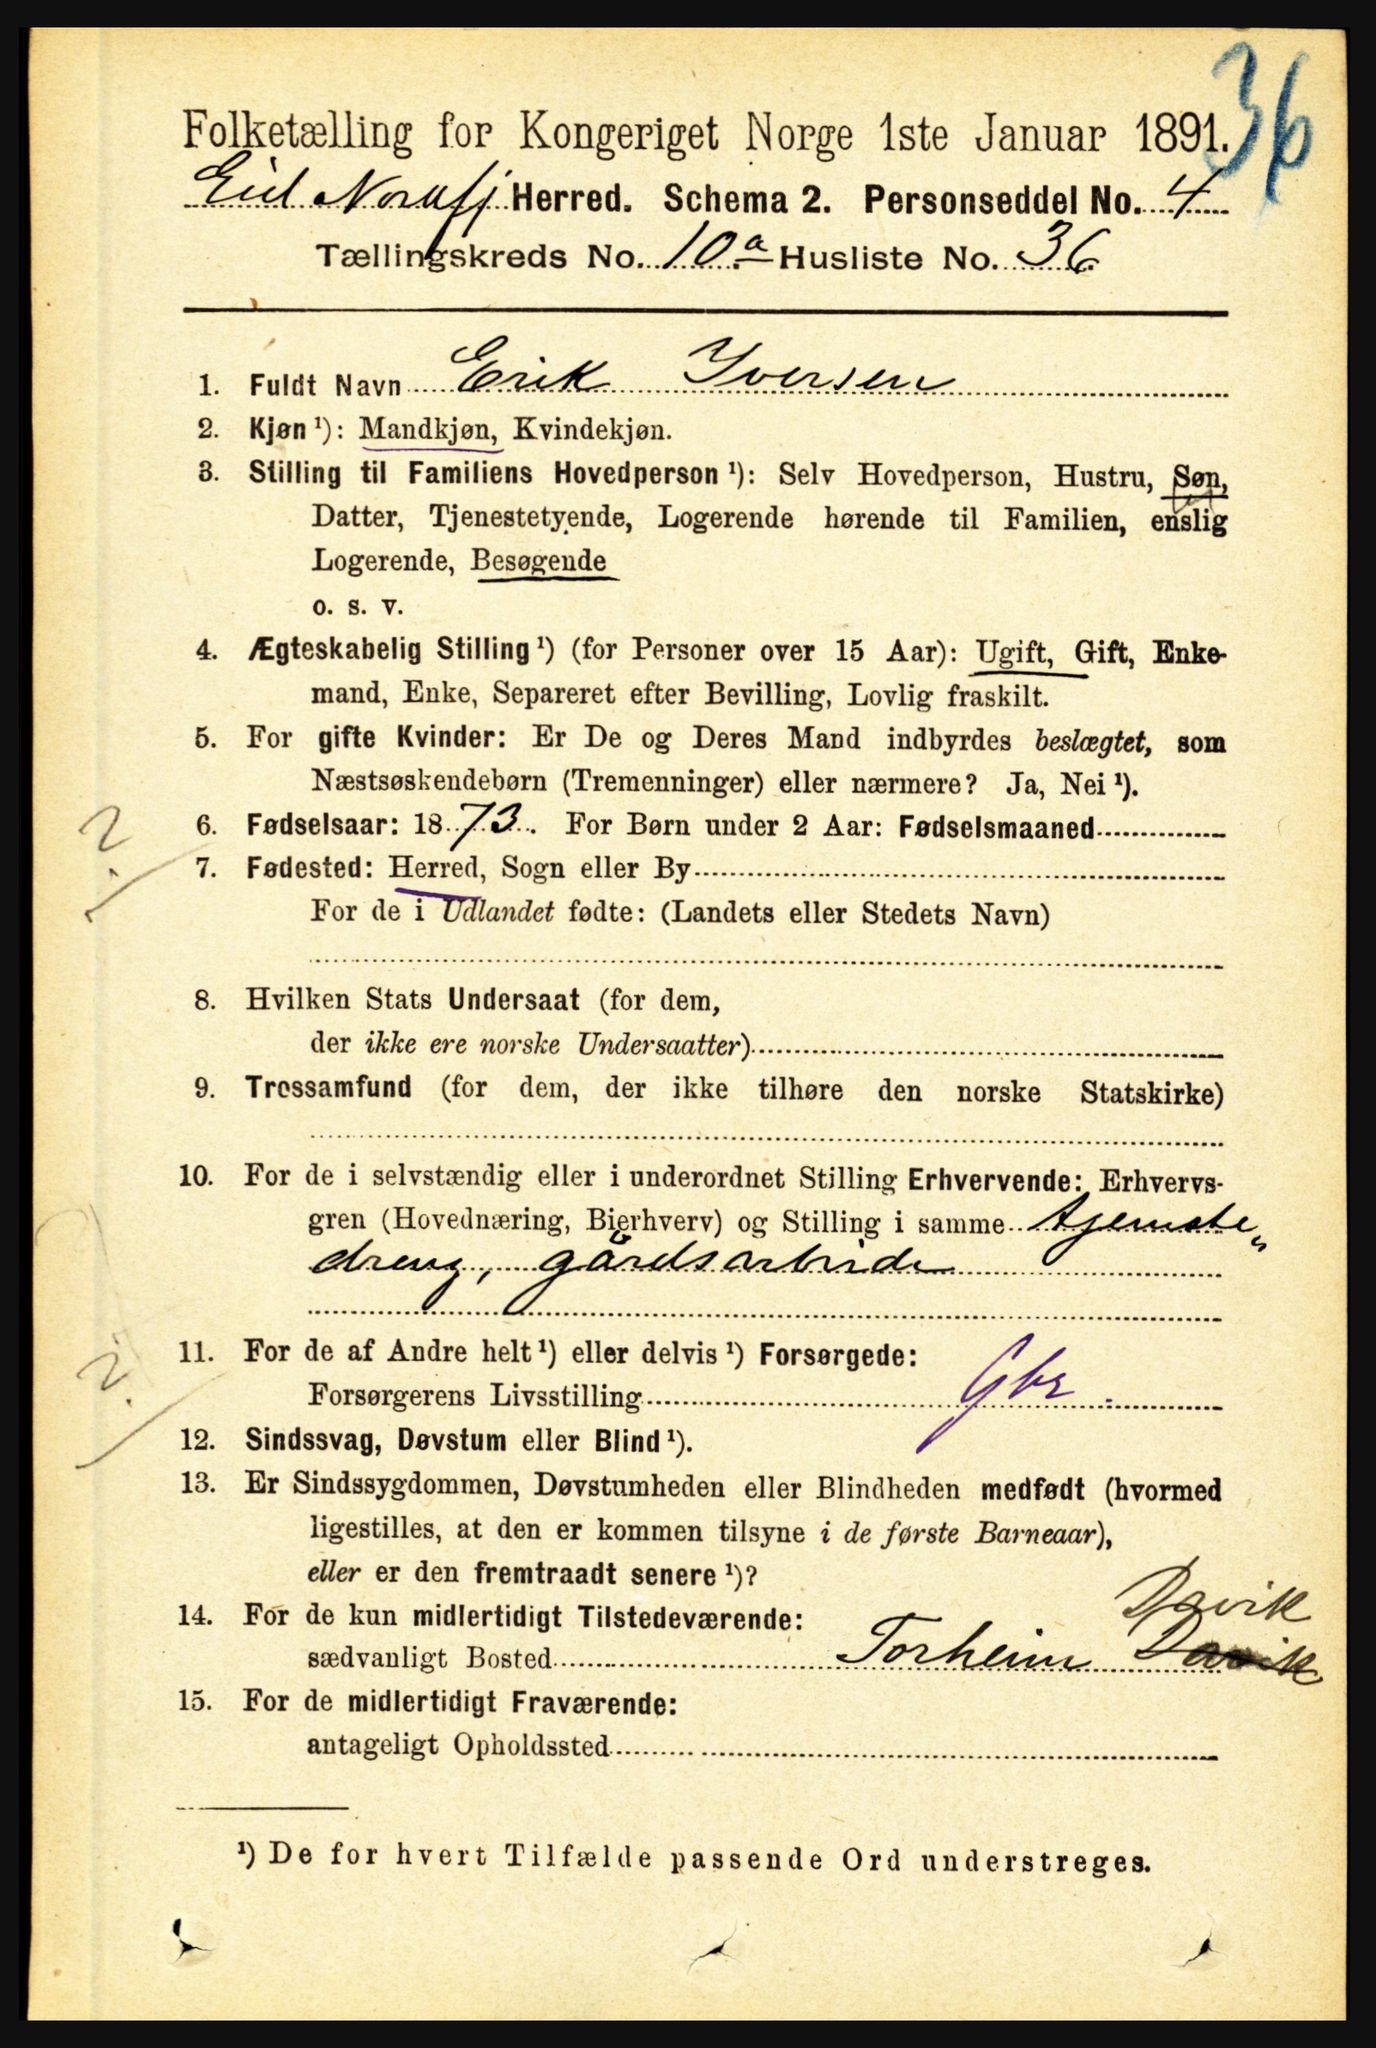 36
Folketælling for Kongeriget Norge 1ste Januar 1891.
Eid Nordfj Herred. Schema 2. Personseddel No. 4
Tællingskreds No. 10 a Husliste No. 36
1. Fuldt Navn Erik Iversen
2. Kjøn ¹): Mandkjøn, Kvindekjøn.
3. Stilling til Familiens Hovedperson ¹): Selv Hovedperson, Hustru, Søn,
Datter, Tjenestetyende, Logerende hørende til Familien, enslig
Logerende, Besøgende
o. s. v.
4. Ægteskabelig Stilling ¹) (for Personer over 15 Aar): Ugift, Gift, Enke-
mand, Enke, Separeret efter Bevilling, Lovlig fraskilt.
5. For gifte Kvinder: Er De og Deres Mand indbyrdes beslægtet, som
Næstsøskendebørn (Tremenninger) eller nærmere? Ja, Nei ¹).
6. Fødselsaar: 1873. For Børn under 2 Aar: Fødselsmaaned
7. Fødested: Herred, Sogn eller By
For de i Udlandet fødte: (Landets eller Stedets Navn)
8. Hvilken Stats Undersaat (for dem,
der ikke ere norske Undersaatter)
9. Trossamfund (for dem, der ikke tilhøre den norske Statskirke)
10. For de i selvstændig eller i underordnet Stilling Erhvervende: Erhvervs-
gren (Hovednæring, Bierhverv) og Stilling i samme tjeneste„
dreng, gårdsarbeide
11. For de af Andre helt ¹) eller delvis ¹) Forsørgede:
Forsørgerens Livsstilling Gbr.
12. Sindssvag, Døvstum eller Blind ¹).
13. Er Sindssygdommen, Døvstumheden eller Blindheden medfødt (hvormed
ligestilles, at den er kommen tilsyne i de første Barneaar),
eller er den fremtraadt senere ¹)?
14. For de kun midlertidigt Tilstedeværende: Davik
sædvanligt Bosted Torheim Davik
15. For de midlertidigt Fraværende:
antageligt Opholdssted
¹) De for hvert Tilfælde passende Ord understreges.